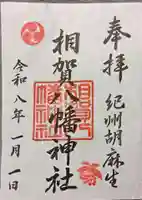 奉拝
紀州胡麻生
相賀八幡神社
令和八年一月一日